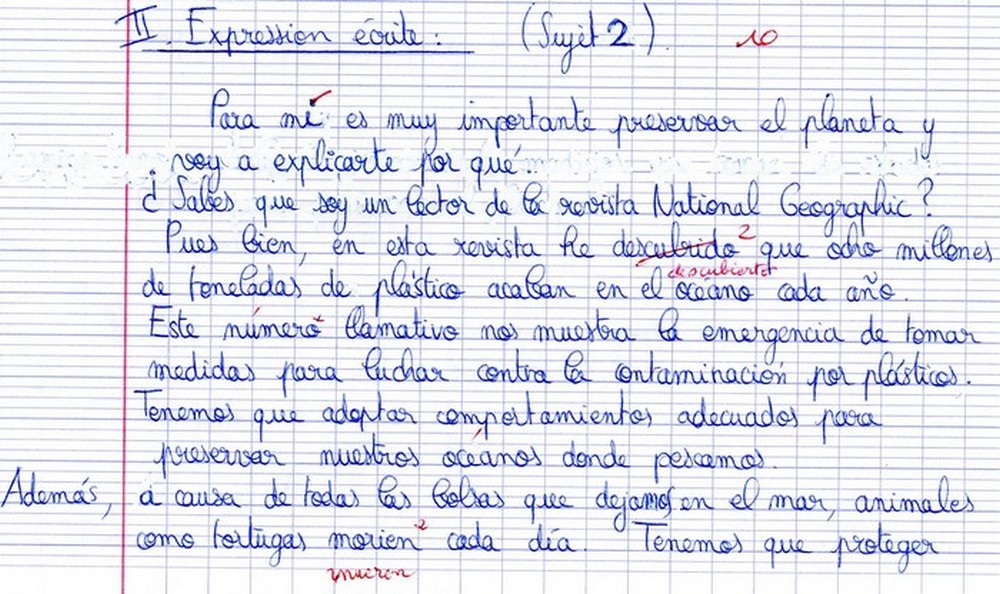 II. Expression écrite : (Sujet 2). 10
Para mí es muy importante preservar el planeta y
voy a explicarte por qué.
¿ Sabes que soy un lector de la revista National Geographic ?
Pues bien, en esta revista he descubrido 2 que ocho millones
descubierto
de toneladas de plástico acaban en el océano cada año.
Este número llamativo nos muestra la emergencia de tomar
medidas para luchar contra la contaminación por plásticos.
Tenemos que adoptar comportamientos adecuados para
preservar nuestros océanos donde pescamos.
Además, a causa de todas las bolsas que dejamos en el mar, animales
como tortugas morien 2 cada día. Tenemos que proteger
mueren